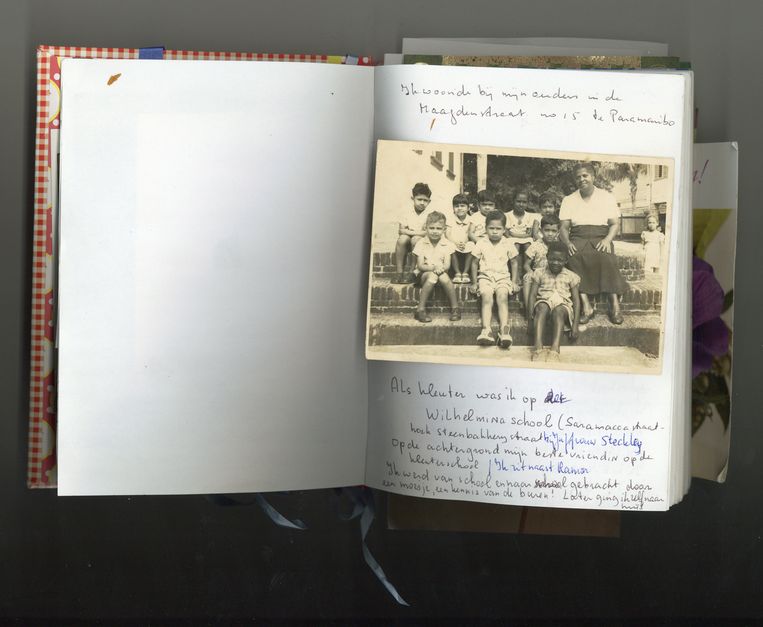 Ik woonde bij mijn ouders in de
Maagdenstraat no 15 te Paramaribo
!
Als kleuter was ik op de
Wilhelmina school (Saramaccastraat-
hoek Steenbakkerijstraat bij juffrouw Steckley
Op de achtergrond mijn beste vriendin op de
kleuterschool / Ik zit naast Ramon
Ik werd van school en naar school gebracht door
een moesje, een kennis van de buren! Later ging ik zelf naar
huis